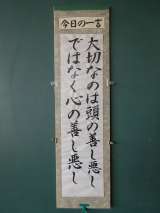 今日の一言
大切なのは頭の善し悪し
ではなく心の善し悪し